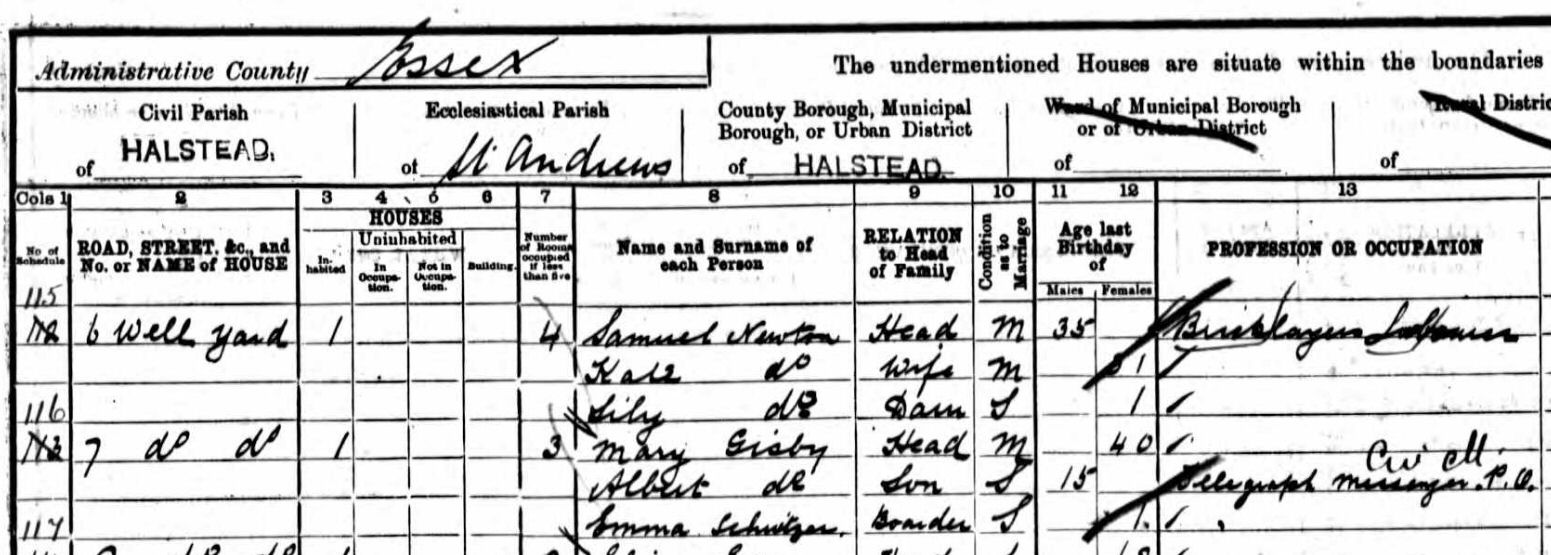 Administrative County Essex
The undermentioned Houses are situate within the boundaries
Civil Parish
of HALSTEAD.
Ecclesiastical Parish
of St Andrews
County Borough, Municipal
Borough, or Urban District
of HALSTEAD.
Ward of Municipal Borough
or of Urban District
of
Rural District
of
Cols 1 2 3 4 5 6 7 8 9 10 11 12 13
No of Schedule
ROAD, STREET, &c., and
No. or NAME of HOUSE
HOUSES
In-habited
Uninhabited
In Occupa-tion.
Not in Occupa-tion.
Building.
Number of Rooms occupied if less than five
Name and Surname of
each Person
RELATION
to Head
of Family
Condition as to Marriage
Age last
Birthday
of
Males Females
PROFESSION OR OCCUPATION
115
112 6 Well Yard 1 4 Samuel Newton Head M 35 Bricklayers Labourer
Kate do Wife M 31
Lily do Daur S 1
116
113 7 do do 1 3 Mary Gisby Head M 40
Civil
Albert do Son S 15 Telegraph Messenger. P.O.
117
Emma Boarder S 1